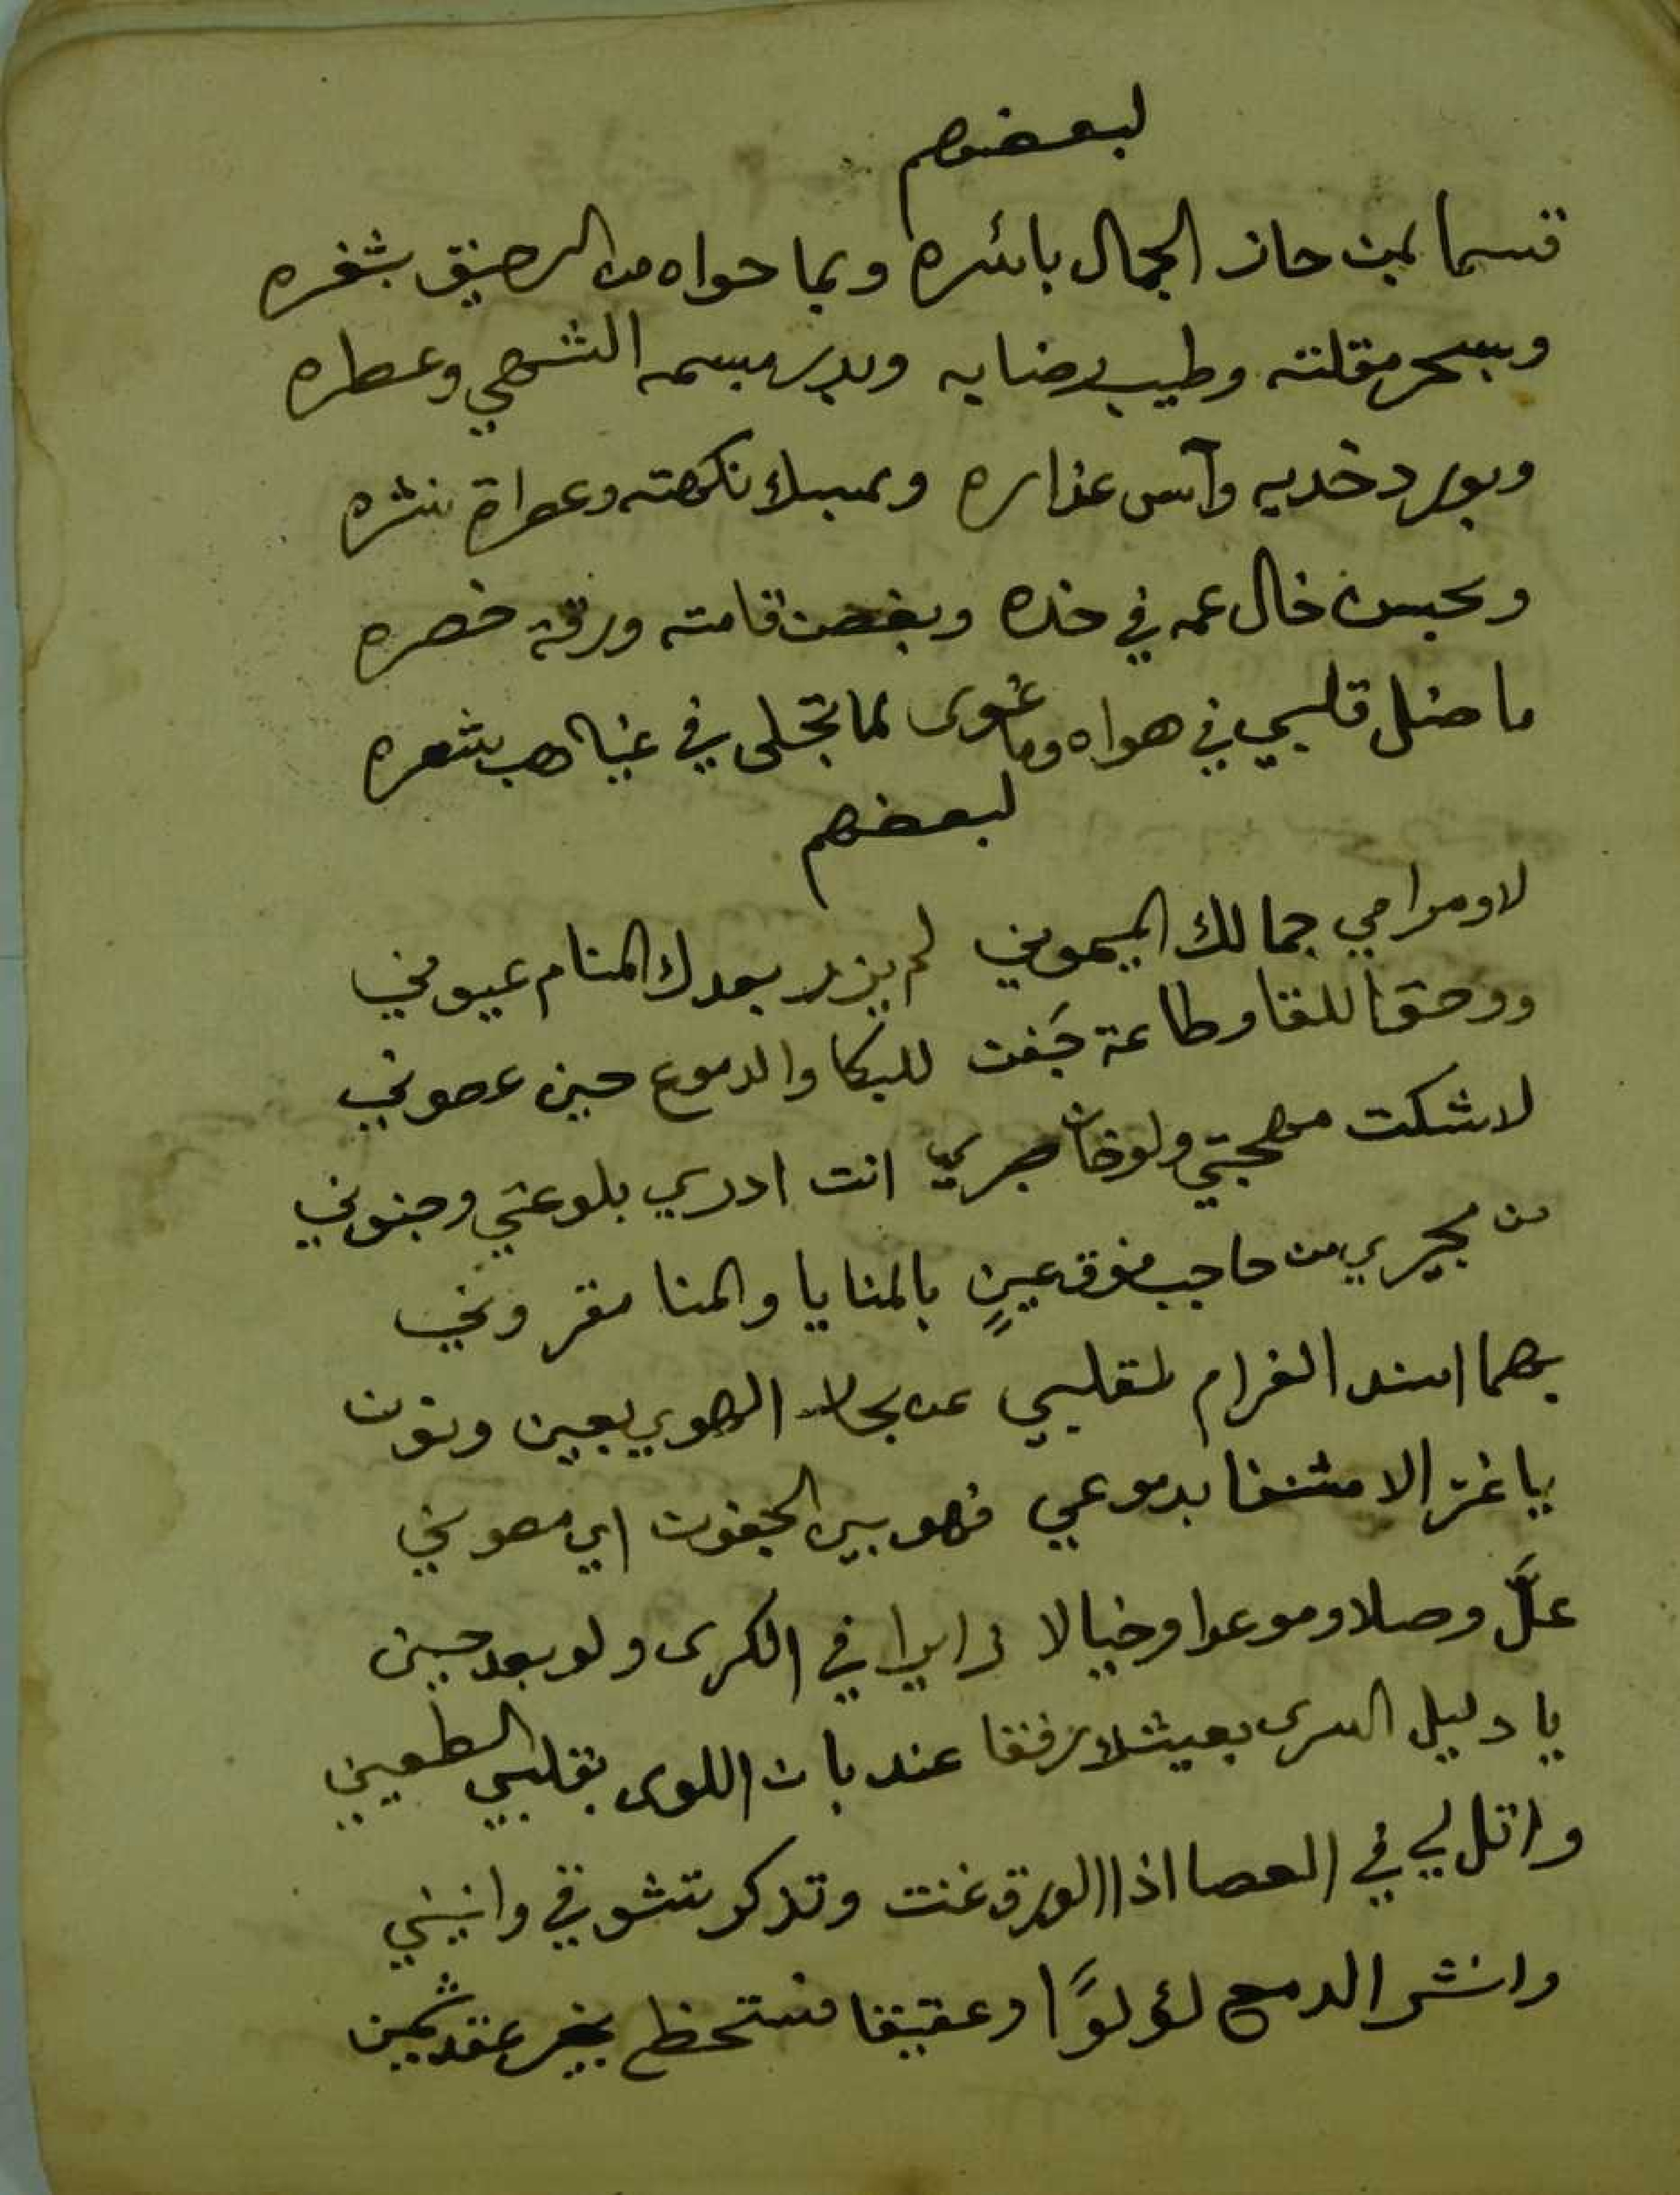 لبعضهم
قسما بمن حاز الجمال بائسره وبما حواه من الرحيق بثغره
وبسحر مقلته وطيب رضابه وبدر مبسمه الشهي وعطره
وبورد خديه وآس عذاره وبمسك نكهته وعراة نشره
وبحسن خال عمه في خده وبغصن قامته ورقة خصره
ما ضل قلبي في هواه وما غوى لما تجلى في غياهب شعره
لبعضهم
لا ومرامي جمالك الميمون لم يزر بعدك المنام عيوني
ووحق اللقا وطاعة جَفن للبكا والدموع حين عصوني
لا شكت مهجتي ولو خان صبري انت ادري بلوعتي وجنوني
من مجيري من حاجب فوق عينٍ بالمنايا والمنا مقروني
بهما اسند الغرام لقلبي عن الهوي بعين ونون
يا غزالا بدموعي فهو بين الجفون اي مصوني
علَّ وصلا وموعدا وخيالا زايرا في الكرى ولو بعد حين
يا دليل السرى بعيشك رفقا عند بان اللوى بقلبي الطعين
واتل لي في العصا اذا الورق غنت وتذكر تشوقي وانيني
وانثر الدمع لؤلؤًا وعقيقا بخير عقد ثمين